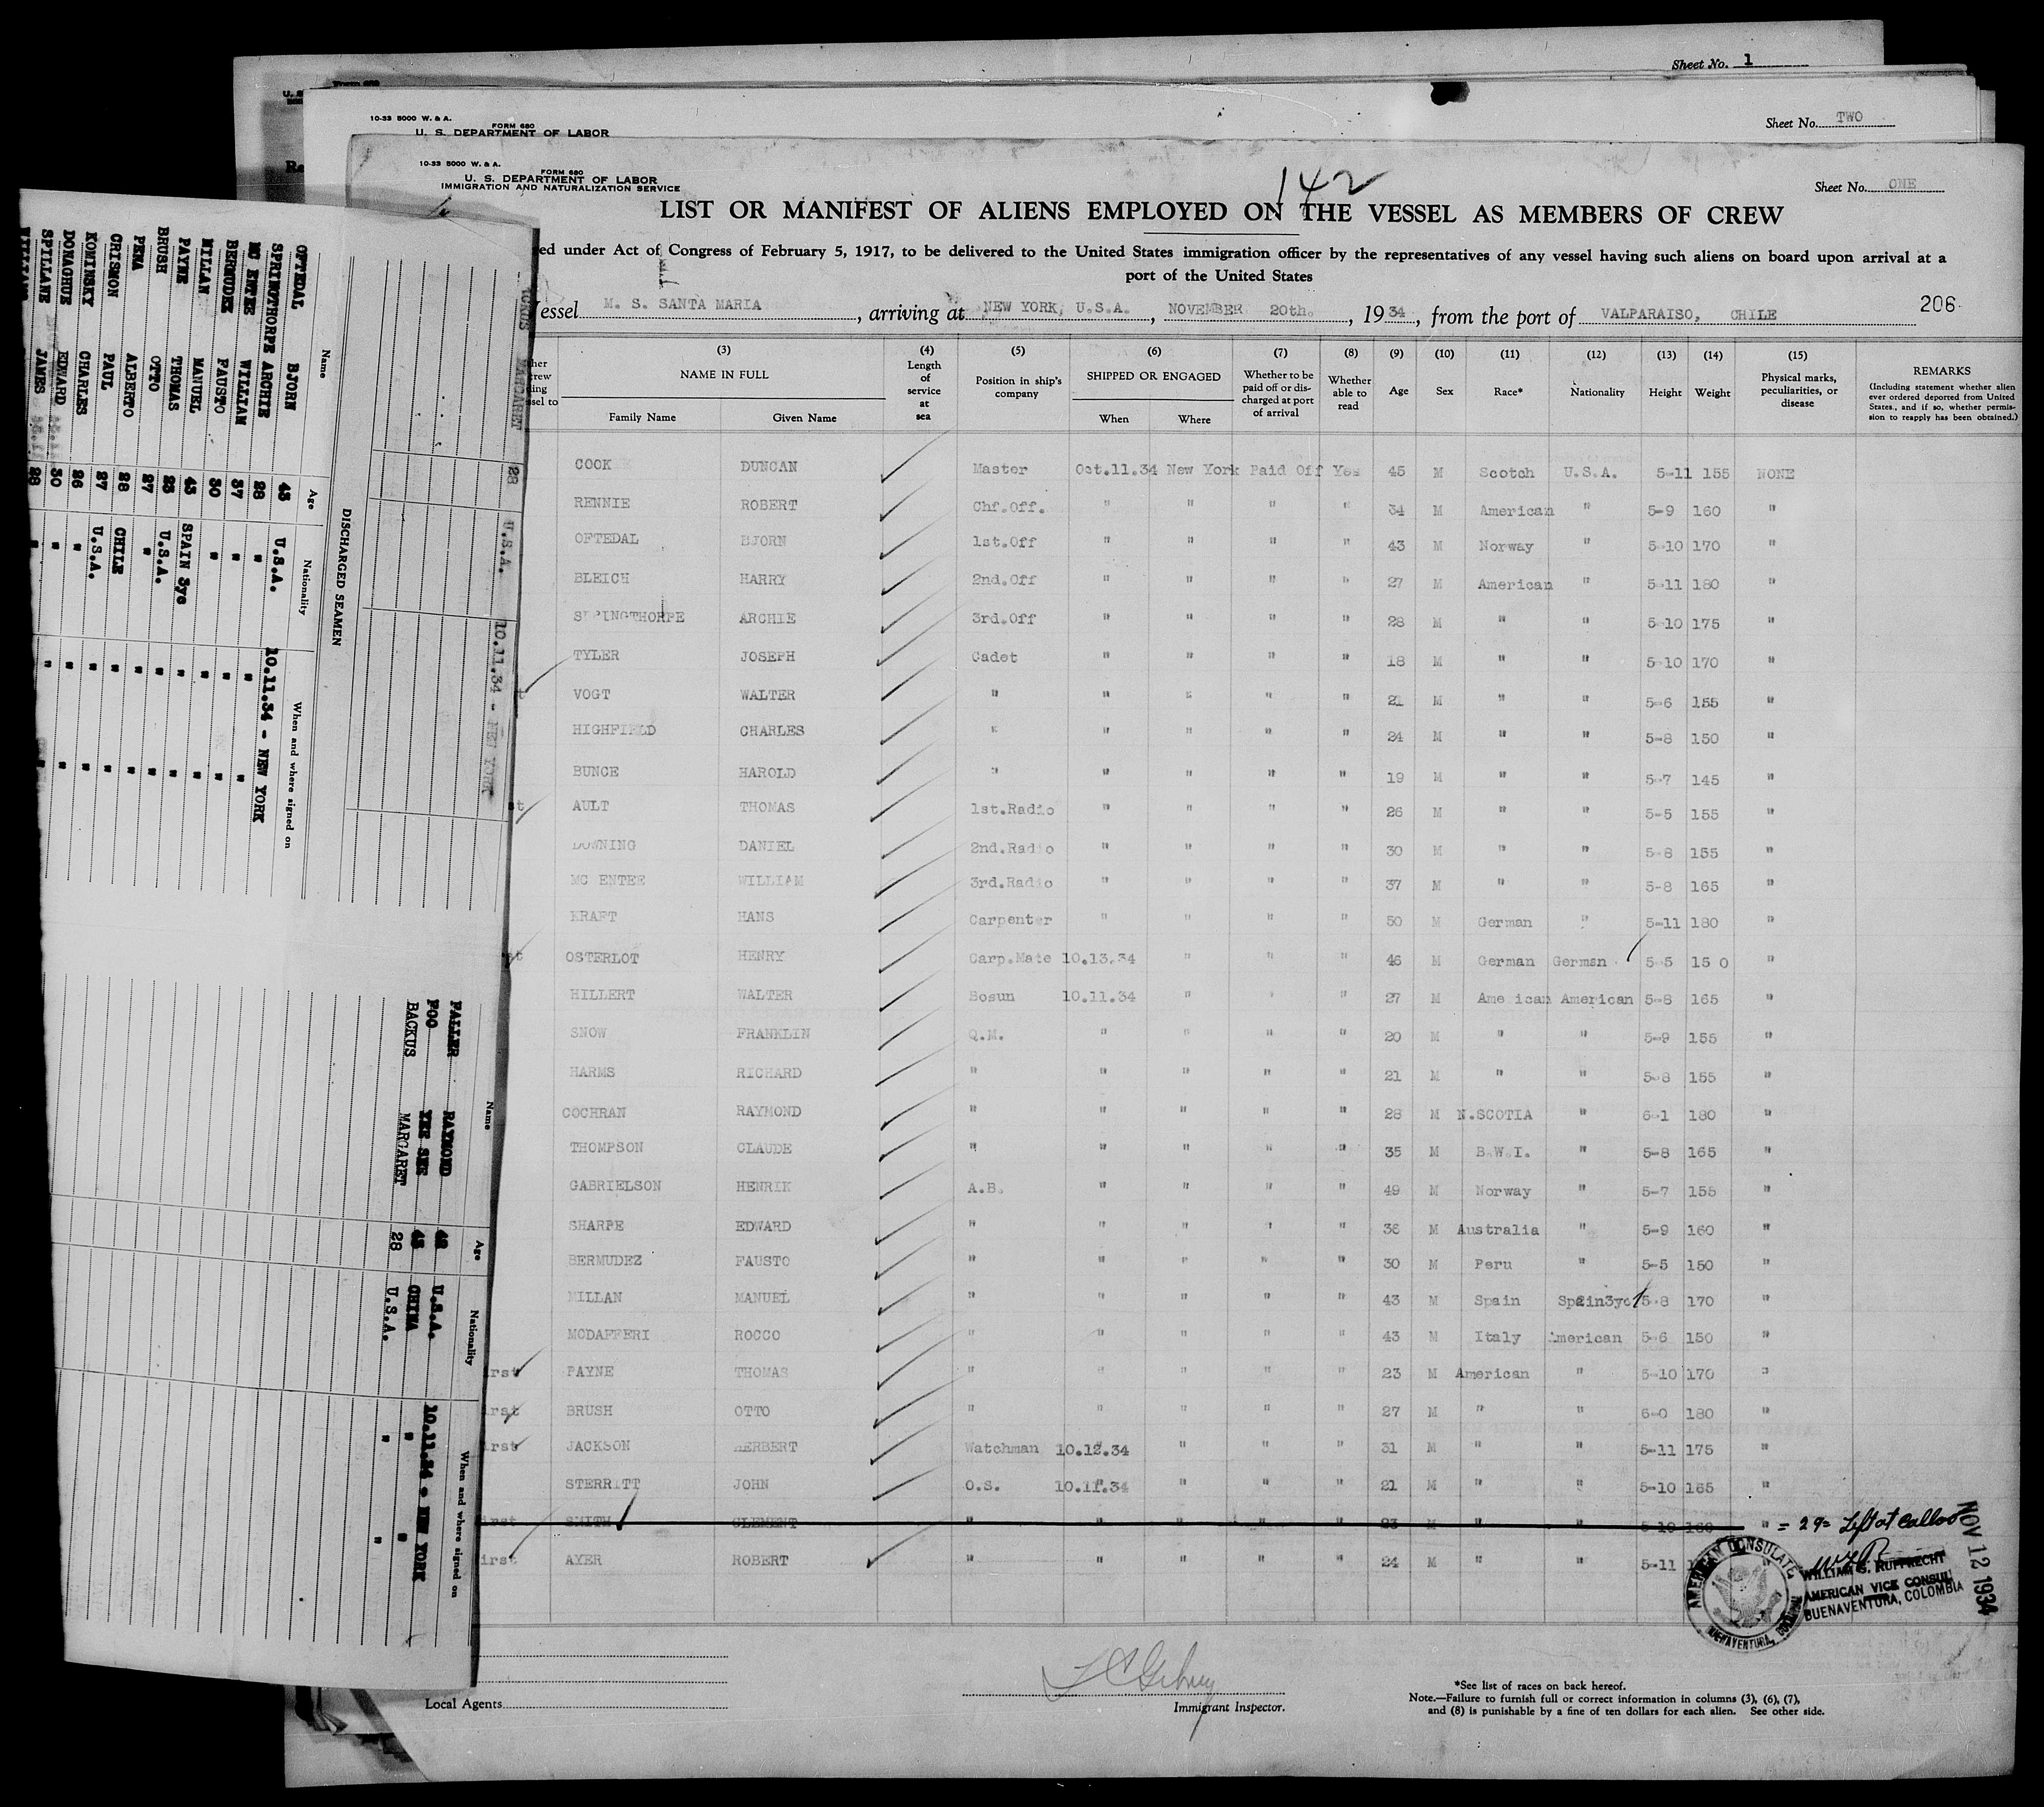 Sheet No. 1
10-33 5000 W. & A.
FORM 680
U. S. DEPARTMENT OF LABOR
Sheet No. TWO
10-33 5000 W. & A.
FORM 680
U. S. DEPARTMENT OF LABOR
IMMIGRATION AND NATURALIZATION SERVICE
142
Sheet No. ONE
LIST OR MANIFEST OF ALIENS EMPLOYED ON THE VESSEL AS MEMBERS OF CREW
ed under Act of Congress of February 5, 1917, to be delivered to the United States immigration officer by the representatives of any vessel having such aliens on board upon arrival at a
port of the United States
essel M. S. SANTA MARIA, arriving at NEW YORK, U.S.A., NOVEMBER 20th., 1934, from the port of VALPARAISO, CHILE 206
(3) NAME IN FULL Family Name Given Name
(4) Length of service at sea
(5) Position in ship's company
(6) SHIPPED OR ENGAGED When Where
(7) Whether to be paid off or discharged at port of arrival
(8) Whether able to read
(9) Age
(10) Sex
(11) Race*
(12) Nationality
(13) Height
(14) Weight
(15) Physical marks, peculiarities, or disease
REMARKS (Including statement whether alien ever ordered deported from United States, and if so, whether permission to reapply has been obtained.)
COOK DUNCAN Master Oct.11.34 New York Paid Off Yes 45 M Scotch U.S.A. 5-11 155 NONE
RENNIE ROBERT Chf.Off. " " " " 34 M American " 5-9 160 "
OFTEDAL BJORN 1st.Off " " " " 43 M Norway " 5-10 170 "
BLEICH HARRY 2nd.Off " " " " 27 M American " 5-11 180 "
SPRINGTHORPE ARCHIE 3rd.Off " " " " 28 M " " 5-10 175 "
TYLER JOSEPH Cadet " " " " 18 M " " 5-10 170 "
VOGT WALTER " " " " " 21 M " " 5-6 155 "
HIGHFIELD CHARLES " " " " " 24 M " " 5-8 150 "
BUNCE HAROLD " " " " " 19 M " " 5-7 145 "
AULT THOMAS 1st.Radio " " " " 26 M " " 5-5 155 "
DOWNING DANIEL 2nd.Radio " " " " 30 M " " 5-8 155 "
MC ENTEE WILLIAM 3rd.Radio " " " " 37 M " " 5-8 165 "
KRAFT HANS Carpenter " " " " 50 M German " 5-11 180 "
OSTERLOT HENRY Carp.Mate 10.13.34 " " " 46 M German German 5-5 15 0 "
HILLERT WALTER Bosun 10.11.34 " " " 27 M American American 5-8 165 "
SNOW FRANKLIN Q.M. " " " " 20 M " " 5-9 155 "
HARMS RICHARD " " " " " 21 M " " 5-8 155 "
COCHRAN RAYMOND " " " " " 28 M N.SCOTIA " 6-1 180 "
THOMPSON CLAUDE " " " " " 35 M B.W.I. " 5-8 165 "
GABRIELSON HENRIK A.B. " " " " 49 M Norway " 5-7 155 "
SHARPE EDWARD " " " " " 36 M Australia " 5-9 160 "
BERMUDEZ FAUSTO " " " " " 30 M Peru " 5-5 150 "
MILLAN MANUEL " " " " " 43 M Spain Spain3yc 5-8 170 "
MODAFFERI ROCCO " " " " " 43 M Italy American 5-6 150 "
irst PAYNE THOMAS " " " " " 23 M American " 5-10 170 "
irst BRUSH OTTO " " " " " 27 M " " 6-0 180 "
irst JACKSON HERBERT Watchman 10.12.34 " " " 31 M " " 5-11 175 "
STERRITT JOHN O.S. 10.11.34 " " " 21 M " " 5-10 165 "
irst SMITH CLEMENT " " " " " 23 M " " 5-10 160 " = 29 = Left at Callao
irst AYER ROBERT " " " " " 24 M " " 5-11
AMERICAN CONSULATE
BUENAVENTURA, COLOMBIA
WILLIAM G. RUPPRECHT
AMERICAN VICE CONSUL
BUENAVENTURA, COLOMBIA
NOV 12 1934
Local Agents
Immigrant Inspector.
*See list of races on back hereof.
Note.—Failure to furnish full or correct information in columns (3), (6), (7),
and (8) is punishable by a fine of ten dollars for each alien. See other side.
MARGARET 28 U.S.A. 10.11.34 - NEW YORK
DISCHARGED SEAMEN
Name Age Nationality When and where signed on
OFTEDAL BJORN 43 U.S.A. 10.11.34 - NEW YORK
SPRINGTHORPE ARCHIE 28 " " "
MC ENTEE WILLIAM 37 " " "
BERMUDEZ FAUSTO 30 " " "
MILIAN MANUEL 43 SPAIN 3yc " "
PAYNE THOMAS 23 U.S.A. " "
BRUSH OTTO 27 " " "
PENA ALBERTO 28 CHILE " "
CRISMON PAUL 27 U.S.A. " "
KOWINSKY CHARLES 26 " " "
DONAGHUE EDWARD 50 " " "
SPILLANE JAMES 28 " " "
Name Age Nationality When and where signed on
FALLER RAYMOND 46 U.S.A. 10.11.34 - NEW YORK
FOO YEE SEE 45 CHINA " "
BACKUS MARGARET 28 U.S.A. " "